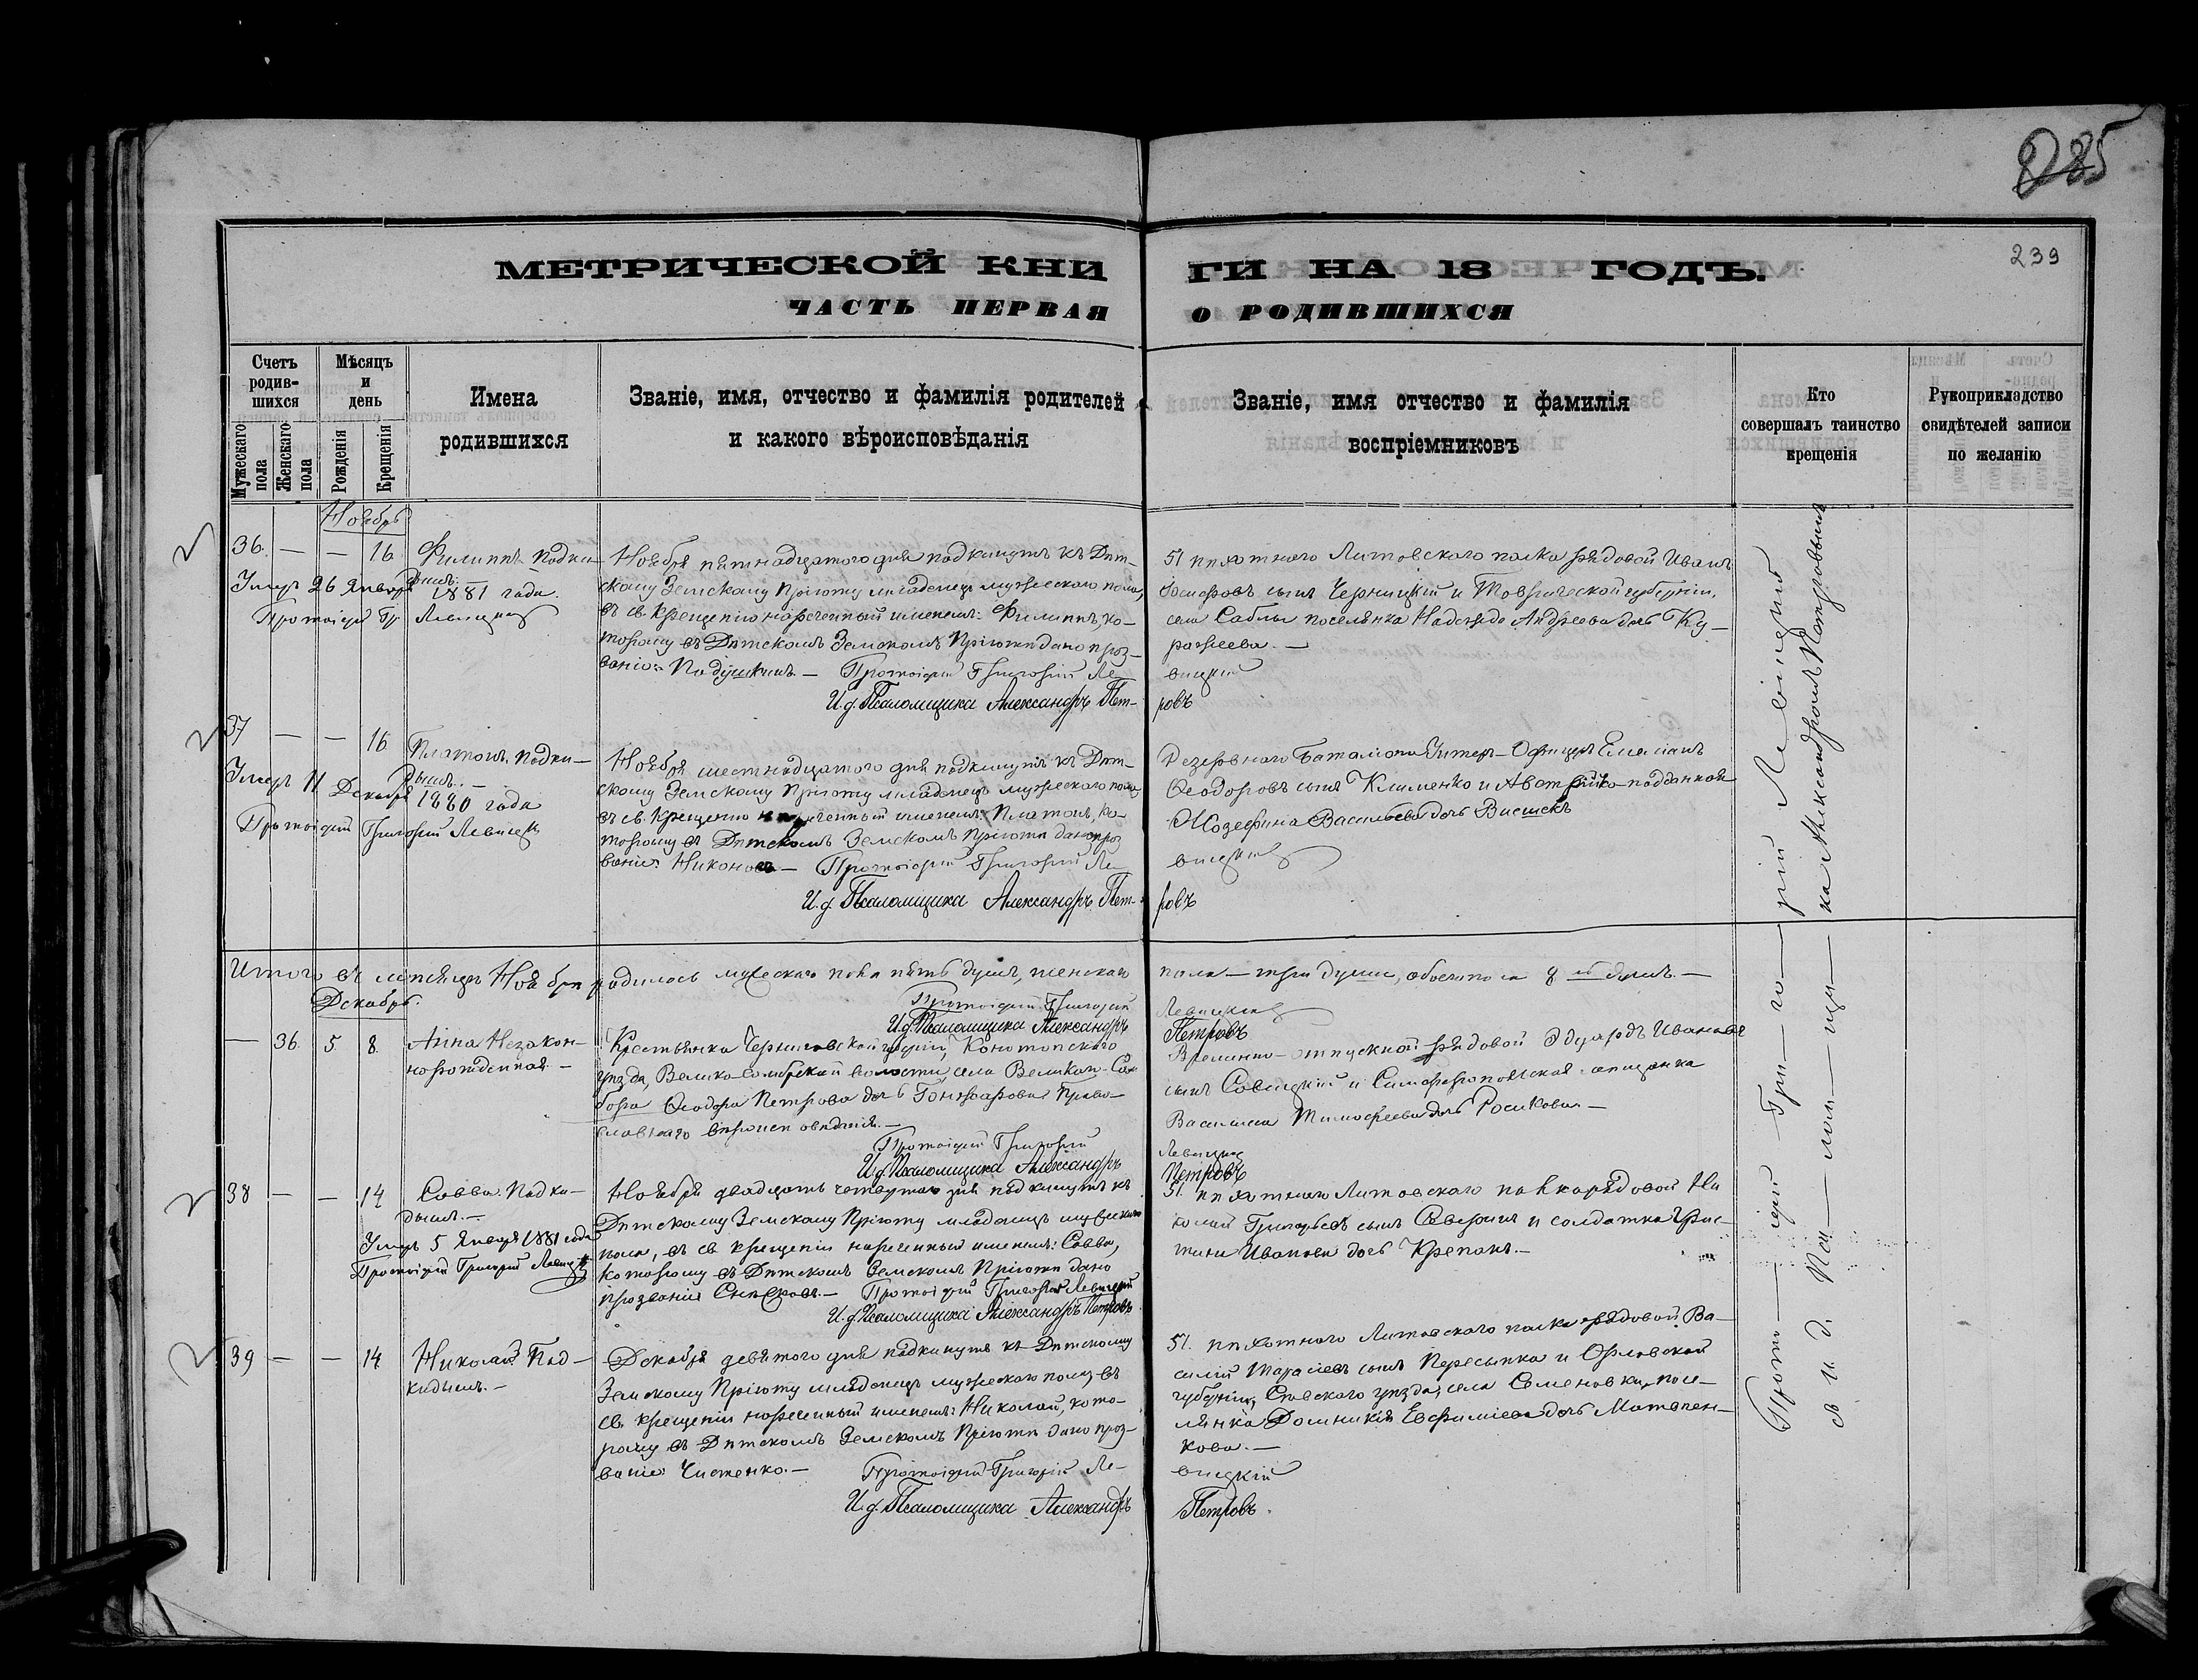 85
239
МЕТРИЧЕСКОЙ КНИГИ НА 18 ГОДЪ.
ЧАСТЬ ПЕРВАЯ О РОДИВШИХСЯ
Счетъ родив-шихся
Мужескаго пола
Женскаго пола
Мѣсяцъ и день
Рожденія
Крещенія
Имена родившихся
Званіе, имя, отчество и фамилія родителей
и какого вѣроисповѣданія
Званіе, имя отчество и фамилія
воспріемниковъ
Кто
совершалъ таинство
крещенія
Рукоприкладство
свидѣтелей записи
по желанію
Ноябрь
36. — — 16
Филиппъ подки-
дышъ.
Умеръ 26 Января 1881 года.
Протоіерей Гр. Левицкій
Ноября пятнадцатого дня подкинутъ къ Дѣт-
скому Земскому Пріюту младенецъ мужескаго пола,
въ св. Крещеніи нареченный именемъ: Филиппъ, ко-
торому въ Дѣтскомъ Земскомъ Пріютѣ дано проз-
ваніе: Подушкинъ. — Протоіерей Григорій Левицкій
И. д. Псаломщика Александръ Петровъ
51 пѣхотнаго Литовскаго полка рядовой Иванъ
сынъ Черницкій и Таврической губерніи,
села Саблы поселянка Надежда Андреева дочь Ку-
ражеева. —
37 — — 16
Платонъ, подки-
дышъ. —
Умеръ 11 Декабря 1880 года
Протоіерей Григорій Левицкій
Ноября шестнадцатого дня подкинутъ къ Дѣт-
скому Земскому Пріюту младенецъ мужескаго пола
въ св. Крещеніи нареченный именемъ: Платонъ, ко-
торому въ Дѣтскомъ Земскомъ Пріютѣ дано проз
ваніе: Никоновъ — Протоіерей Григорій Левицкій
И. д. Псаломщика Александръ Петровъ
Резервнаго Баталіона Унтеръ-Офицеръ Емеліанъ
Ѳеодоровъ сынъ Клименко и Австрійско-подданная
Жозефина Васильева дочь
Итого въ мѣсяцѣ Ноябрѣ родилось мужескаго пола пять душъ, женскаго пола — три души, обоего пола 8 душъ. —
Протоіерей Григорій Левицкій
И. д. Псаломщика Александръ Петровъ
Декабрь.
— 36. 5 8
Анна Незакон-
норожденная —
Крестьянка Черниговской губерніи, Конотопскаго
уѣзда, Велико-Самбрской волости, села Великаго Сам
бора Ѳеодора Петрова дочь Гончарова Право-
славнаго вѣроисповѣданія. —
Протоіерей Григорій Левицкій
И. д. Псаломщика Александръ Петровъ
Временно-отпускной рядовой Эдуардъ Ивановъ
сынъ Савицкій и Симферопольская мѣщанка
Василиса Тимофеева дочь Росикова. —
38 — — 14
Савва. Подки-
дышъ. —
Умеръ 5 Января 1881 года
Протоіерей Григорій Левицкій
Ноября двадцать четвертаго дня подкинутъ къ
Дѣтскому Земскому Пріюту младенецъ мужескаго
пола, въ св. крещеніи нареченный именемъ: Савва,
которому въ Дѣтскомъ Земскомъ Пріютѣ дано
прозваніе — Протоіерей Григорій Левицкій
И. д. Псаломщика Александръ Петровъ
51. пѣхотнаго Литовскаго полка рядовой Ни
колай Григорьевъ сынъ Северинъ и солдатка Хрис-
тина Иванова дочь Крепакъ. —
39 — — 14
Николай. Под-
кидышъ. —
Декабря девятого дня подкинутъ къ Дѣтскому
Земскому Пріюту младенецъ мужескаго пола, въ
св. крещеніи нареченный именемъ: Николай, кото-
рому въ Дѣтскомъ Земскомъ Пріютѣ дано проз-
ваніе: Чистенко. — Протоіерей Григорій Левицкій
И. д. Псаломщика Александръ Петровъ.
51. пѣхотнаго Литовскаго полка рядовой Ва-
силій Тарасіевъ сынъ Пересыпка и Орловской
губерніи, Сѣвскаго уѣзда, села Семеновки, посе-
лянка Домникія Евфиміева дочь Матвѣен-
кова. —
Прото — іерей — Гри — го — рій Левицкій
съ и. д. Пса — лом — щи — ка Александромъ Петровымъ